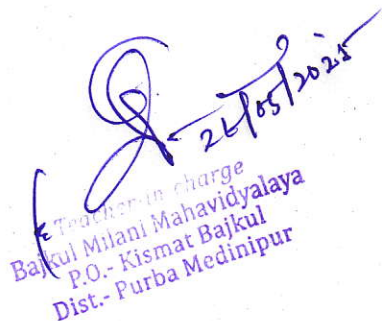 26/05/2025
Teacher-in-charge
Bajkul Milani Mahavidyalaya
P.O.- Kismat Bajkul
Dist.- Purba Medinipur